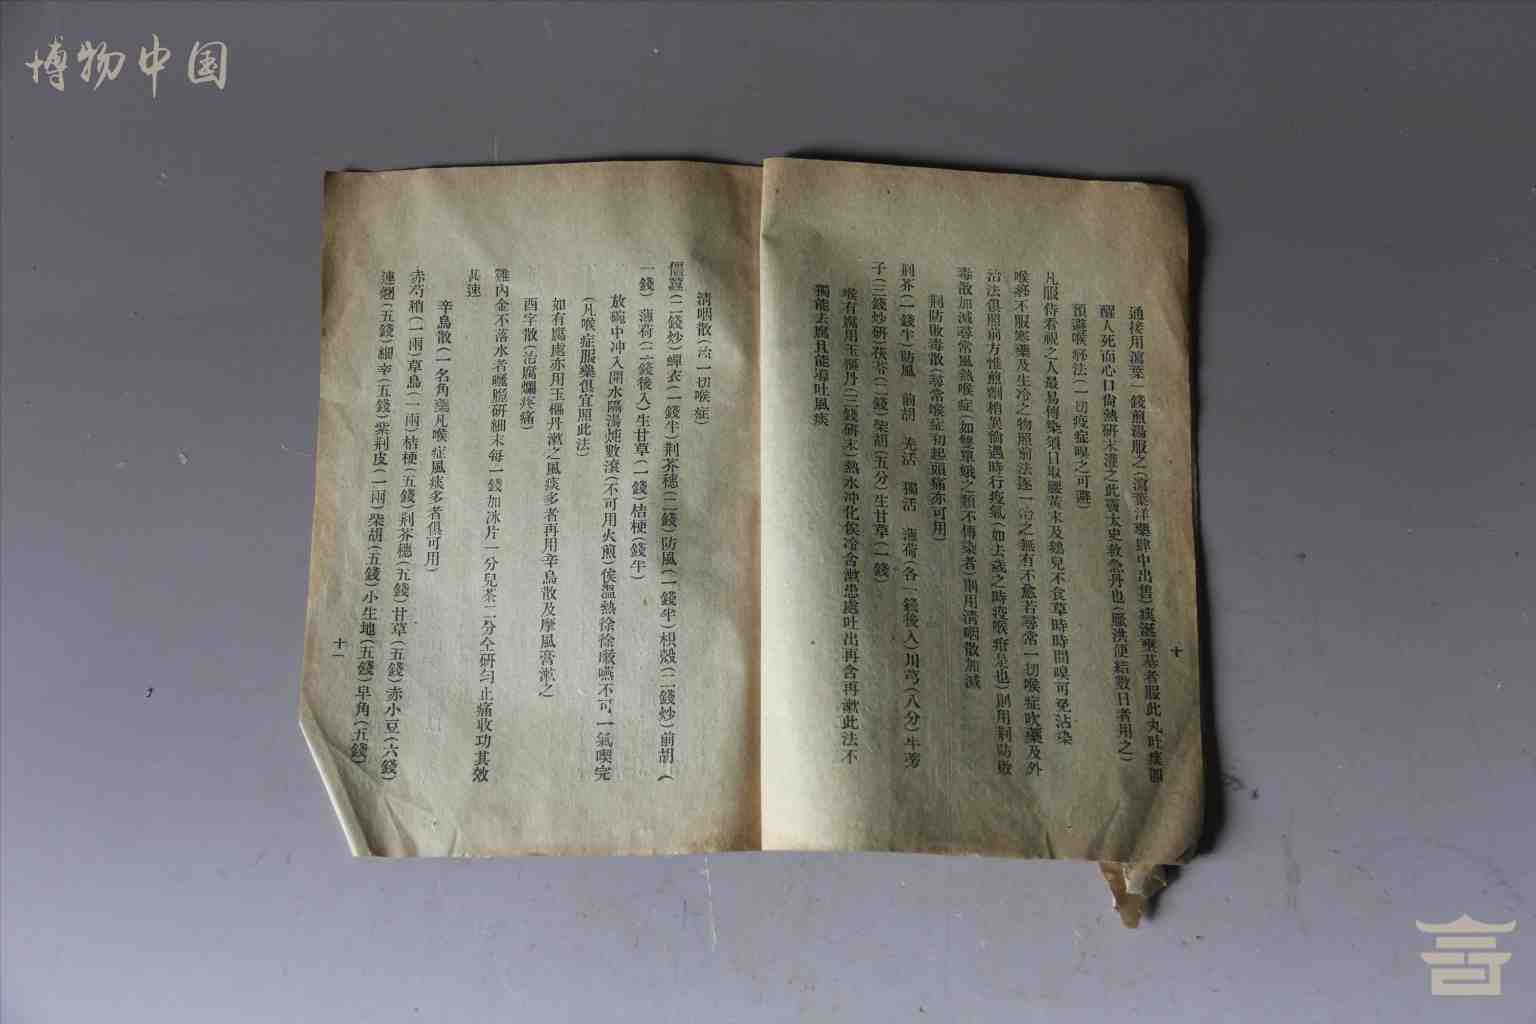 博物中国
十
通接用瀉葉一錢煎湯服之(瀉葉洋藥肆中出售)痰涎壅甚者服此丸吐痰即
醒人死而心口尙熱研末灌之此竇太史救急丹也(脈洪便結數日者用之)
預避喉痧法(一切疫症嗅之可避)
凡服侍看視之人最易傳染須日取雄黃末及 兒不食草時時聞嗅可免沾染
喉痧不服寒藥及生冷之物照前法逐一治之無有不愈若尋常一切喉症吹藥及外
治法俱照前方惟煎劑稍異倘遇時行疫氣(如去歲之時疫喉疳是也)則用荆防敗
毒散加減尋常風熱喉症(如雙單蛾之類不傳染者)則用淸咽散加減
荆防敗毒散(尋常喉症初起頭痛亦可用)
荆芥(一錢半)防風 前胡 羌活 獨活 薄荷(各一錢後入)川芎(八分)牛蒡
子(三錢炒研)茯苓(二錢)柴胡(五分)生甘草(一錢)
喉有腐用玉樞丹(三錢研末)熱水冲化候冷含漱患處吐出再含再漱此法不
獨能去腐且能導吐風痰
淸咽散(治一切喉症)
僵蠶(二錢炒)蟬衣(一錢半)荆芥穗(二錢)防風(一錢半)枳殼(二錢炒)前胡(
一錢)薄荷(二錢後入)生甘草(一錢)桔梗(錢半)
放碗中冲入開水隔湯燉數滾(不可用火煎)俟溫熱徐徐嗽嚥不可一氣喫完
(凡喉症服藥俱宜照此法)
如有腐處亦用玉樞丹漱之風痰多者再用辛烏散及摩風膏漱之
酉字散(治腐爛疼痛)
雞內金不落水者曬脆研細末每一錢加冰片一分兒茶二分全研勻止痛收功其效
其速
辛烏散(一名角藥凡喉症風痰多者俱可用)
赤芍梢(一兩)草烏(一兩)桔梗(五錢)荆芥穗(五錢)甘草(五錢)赤小豆(六錢)
連翹(五錢)細辛(五錢)紫荆皮(一兩)柴胡(五錢)小生地(五錢)皁角(五錢)
十一